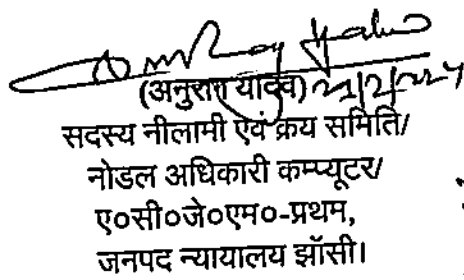 (अनुराग यादव)
सदस्य नीलामी एवं क्रय समिति/
नोडल अधिकारी कम्प्यूटर/
ए०सी०जे०एम०-प्रथम,
जनपद न्यायालय झॉसी।